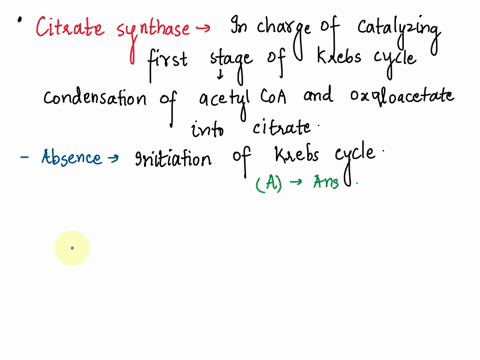 • Citrate synthase → In charge of catalyzing
first stage of Krebs cycle
↓
condensation of acetyl CoA and oxaloacetate
into citrate.
- Absence → Initiation of Krebs cycle.
(A) → Ans.